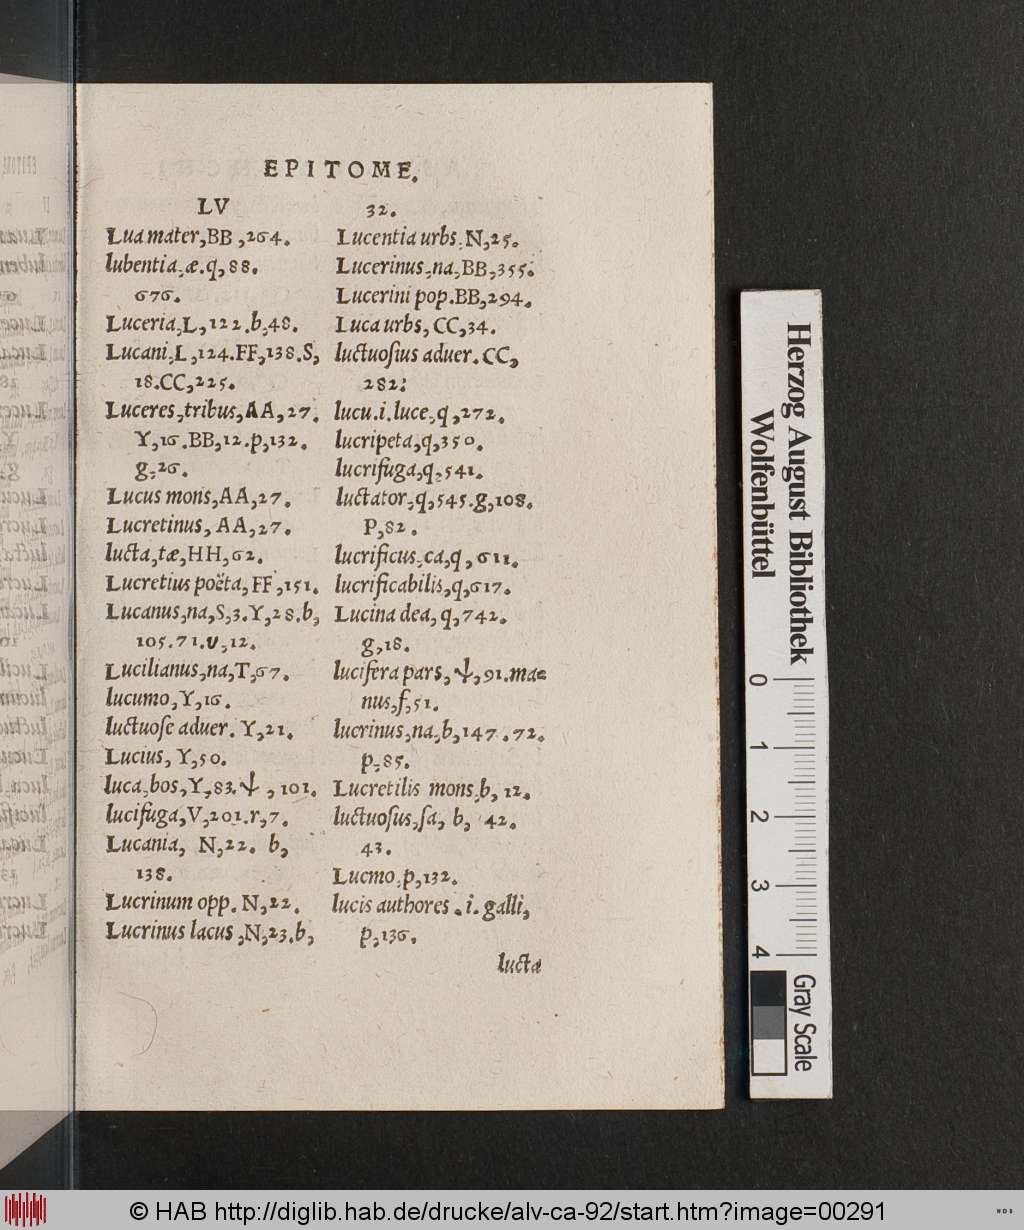 EPITOME.
LV
Lua mater, BB, 264.
lubentia, æ. q, 88.
676.
Luceria, L, 122. b, 48.
Lucani, L, 124. FF, 138. S,
18. CC, 225.
Luceres, tribus, AA, 27.
Y, 16. BB, 12. p, 132.
g, 26.
Lucus mons, AA, 27.
Lucretinus, AA, 27.
lucta, tæ, HH, 62.
Lucretius poëta, FF, 151.
Lucanus, na, S, 3. Y, 28. b,
105. 71. v, 12.
Lucilianus, na, T, 67.
lucumo, Y, 16.
luctuoſe aduer. Y, 21.
Lucius, Y, 50.
luca, bos, Y, 83. ψ, 101.
lucifuga, V, 201. r, 7.
Lucania, N, 22. b,
138.
Lucrinum opp. N, 22.
Lucrinus lacus, N, 23. b,
32.
Lucentia urbs, N, 25.
Lucerinus, na, BB, 355.
Lucerini pop. BB, 294.
Luca urbs, CC, 34.
luctuoſius aduer. CC,
282.
lucu. i. luce, q, 272.
lucripeta, q, 350.
lucrifuga, q, 541.
luctator, q, 545. g, 108.
P, 82.
lucrificus, ca, q, 611.
lucrificabilis, q, 617.
Lucina dea, q, 742.
g, 18.
lucifera pars, ψ, 91. ma=
nus, f, 51.
lucrinus, na, b, 147. 72.
p, 85.
Lucretilis mons, b, 12.
luctuoſus, ſa, b, 42.
43.
Lucmo, p, 132.
lucis authores. i. galli,
p, 136.
lucta
Herzog August Bibliothek
Wolfenbüttel
0 1 2 3 4
Gray Scale
© HAB http://diglib.hab.de/drucke/alv-ca-92/start.htm?image=00291
WDB